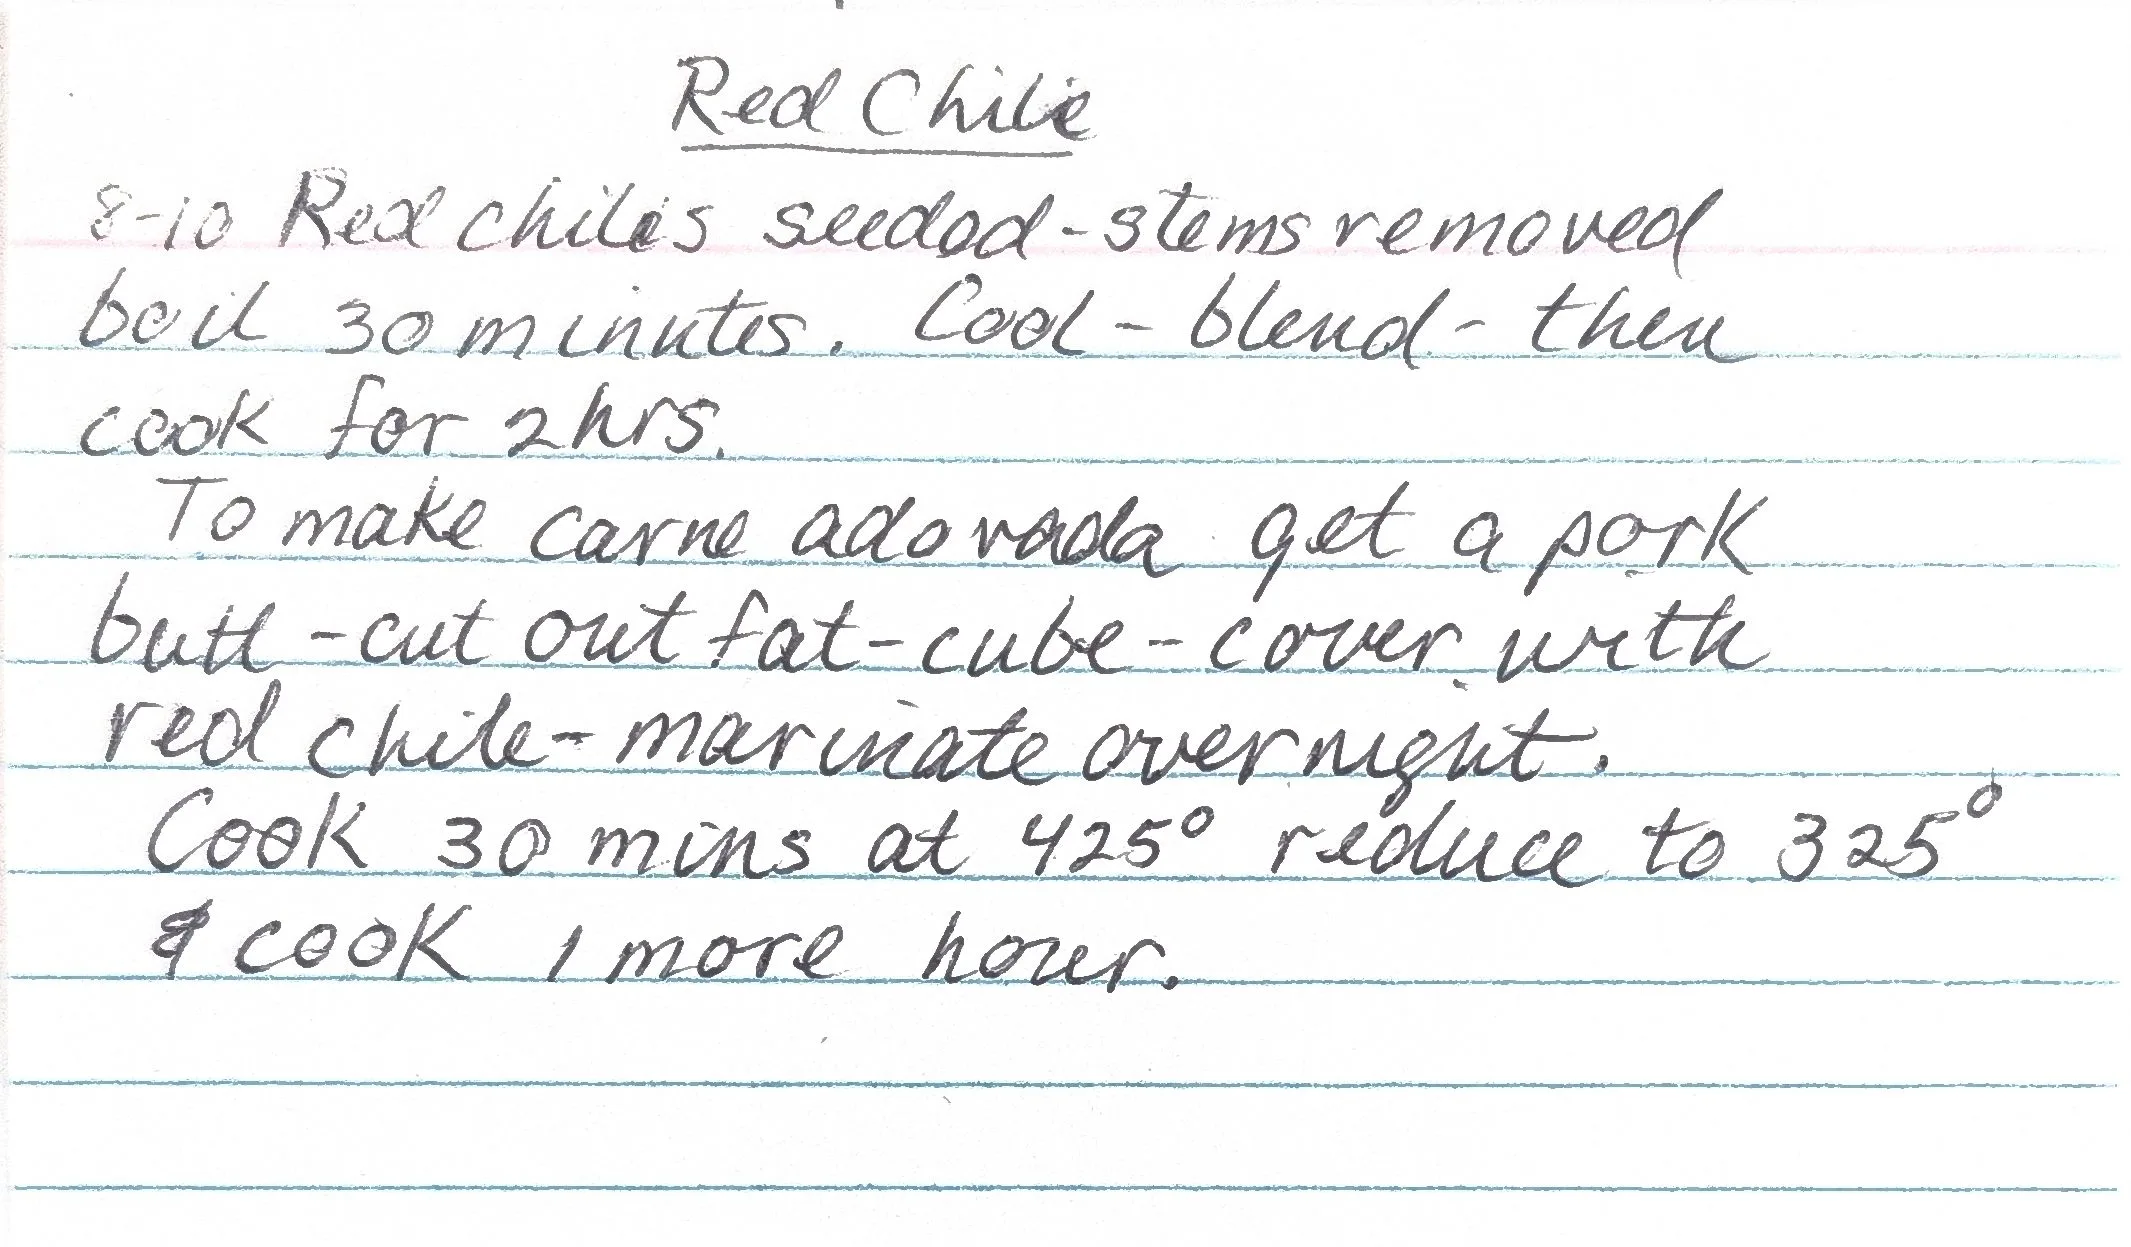 Red Chile
8-10 Red chiles seeded-stems removed
boil 30 minutes. Cool - blend - then
cook for 2 hrs.
To make carne adovada get a pork
butt - cut out fat - cube - cover with
red chile - marinate overnight.
Cook 30 mins at 425° reduce to 325°
& cook 1 more hour.